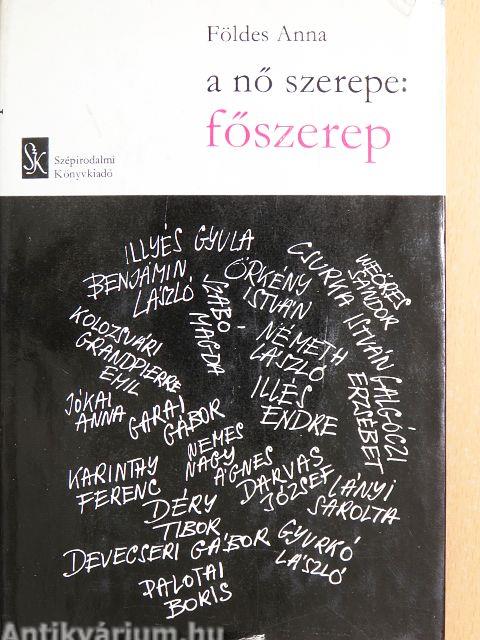 Földes Anna
a nő szerepe:
főszerep
SzK
Szépirodalmi
Könyvkiadó
ILLYÉS GYULA
BENJÁMIN
LÁSZLÓ
SZABÓ
MAGDA
ÖRKÉNY
ISTVÁN
CSURKA ISTVÁN
WEÖRES
SÁNDOR
KOLOZSVÁRI
GRANDPIERRE
EMIL
NÉMETH
LÁSZLÓ
GALGÓCZI
ERZSÉBET
JÓKAI
ANNA
GARAI
GÁBOR
ILLÉS
ENDRE
NEMES
NAGY
ÁGNES
KARINTHY
FERENC
DARVAS
JÓZSEF
LÁNYI
SAROLTA
DÉRY
TIBOR
DEVECSERI GÁBOR
GYURKÓ
LÁSZLÓ
PALOTAI
BORIS
Antikvárium.hu